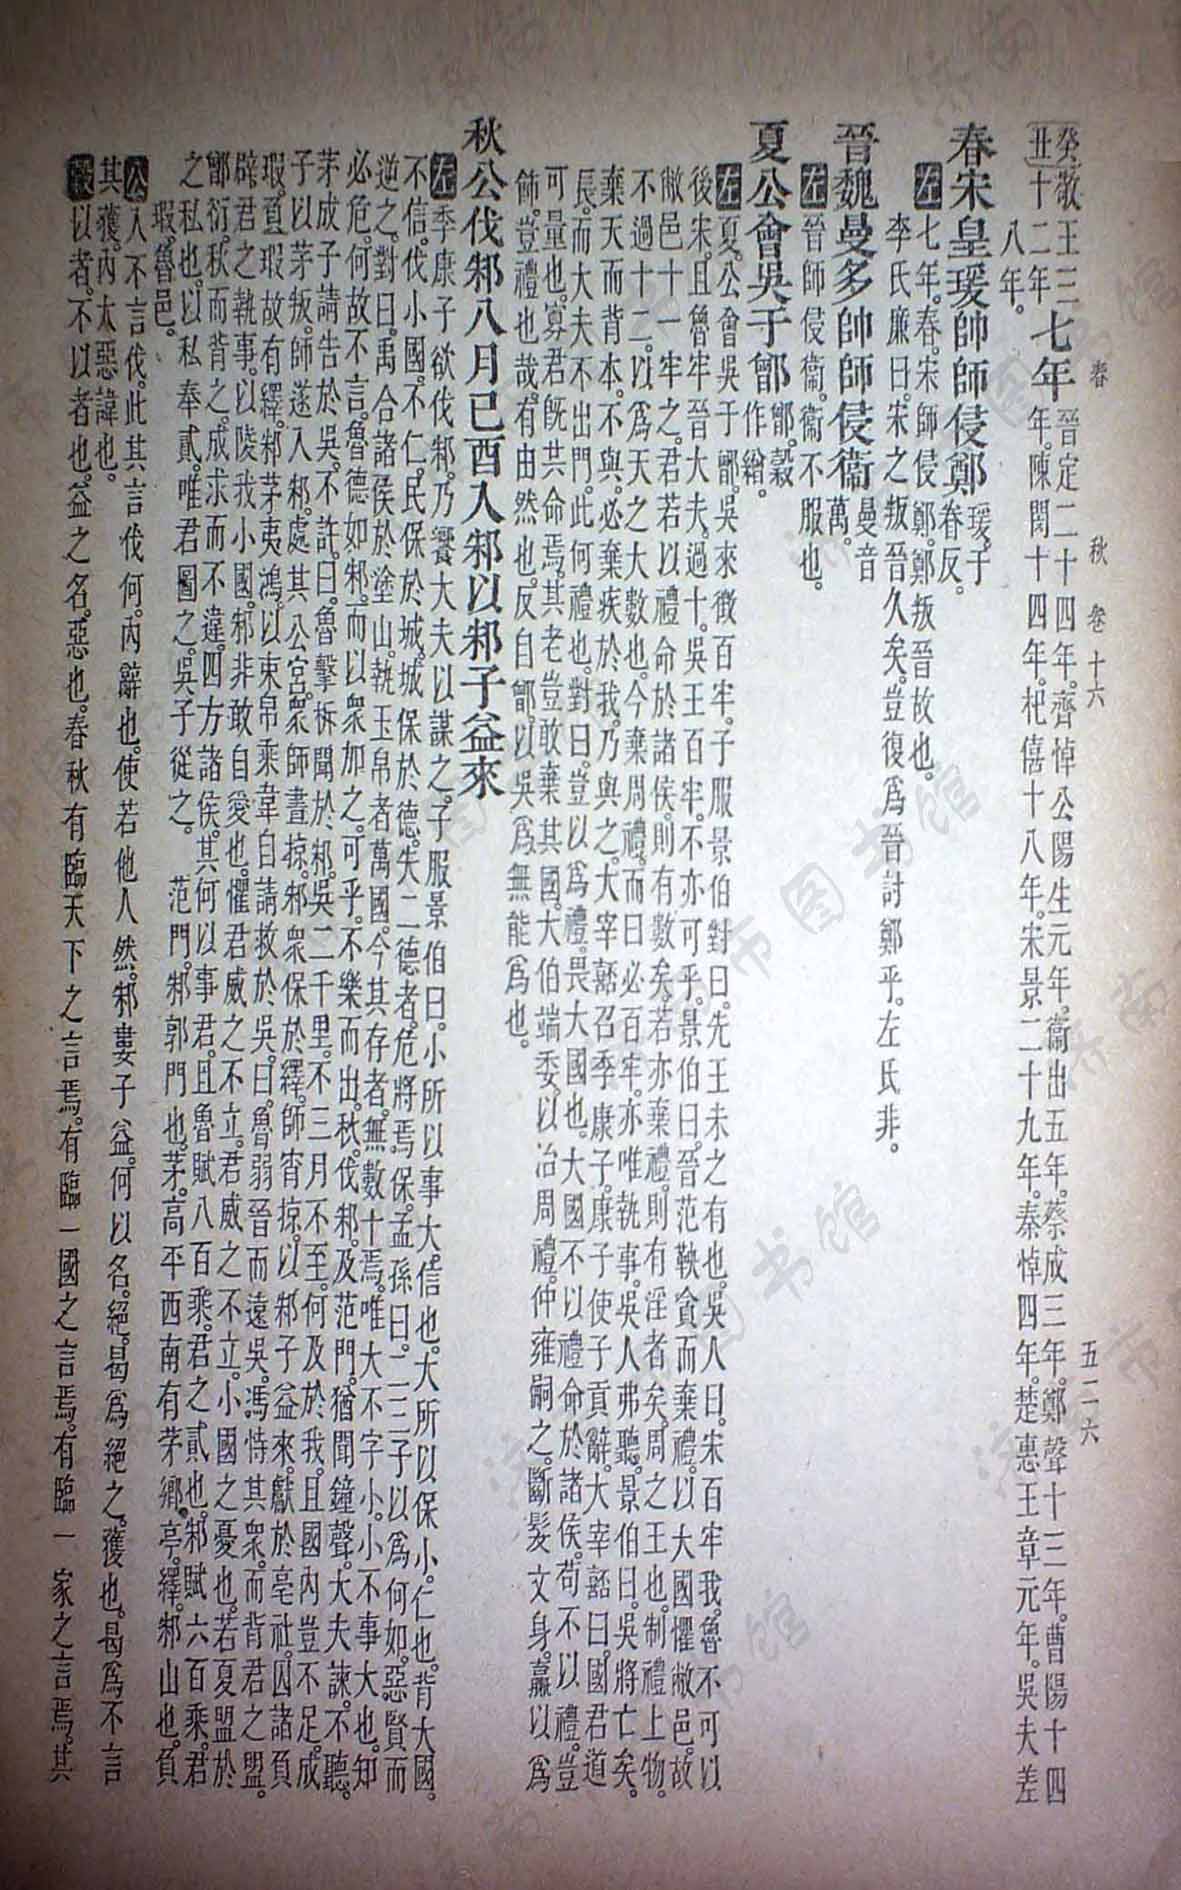 春　秋　卷十六　五二六
癸敬王三七年晉定二十四年。齊悼公陽生元年。衞出五年。蔡成三年。鄭聲十三年。曹陽十四
丑十二年年。陳閔十四年。杞僖十八年。宋景二十九年。秦悼四年。楚惠王章元年。吳夫差
八年。
春宋皇瑗帥師侵鄭瑗。于春反。
左七年。春。宋師侵鄭。鄭叛晉故也。
李氏廉曰。宋之叛晉久矣。豈復爲晉討鄭乎。左氏非。
晉魏曼多帥師侵衞曼音萬。
左晉師侵衞。衞不服也。
夏公會吳于鄫鄫。穀作繒。
左夏。公會吳于鄫。吳來徵百牢。子服景伯對曰。先王未之有也。吳人曰。宋百牢我。魯不可以
後宋。且魯牢晉大夫。過十。吳王百牢。不亦可乎。景伯曰。晉范鞅貪而棄禮。以大國懼敝邑。故
敝邑十一牢之。君若以禮命於諸侯。則有數矣。若亦棄禮。則有淫者矣。周之王也。制禮上物。
不過十二。以爲天之大數也。今棄周禮。而曰必百牢。亦唯執事。吳人弗聽。景伯曰。吳將亡矣。
棄天而背本。不與。必棄疾於我。乃與之。大宰嚭召季康子。康子使子貢辭。大宰嚭曰。國君道
長。而大夫不出門。此何禮也。對曰。豈以爲禮。畏大國也。大國不以禮命於諸侯。苟不以禮。豈
可量也。寡君旣共命焉。其老豈敢棄其國。大伯端委。以治周禮。仲雍嗣之。斷髮文身。臝以爲
飾。豈禮也哉。有由然也。反自鄫。以吳爲無能爲也。
秋公伐邾八月己酉入邾以邾子益來
左季康子欲伐邾。乃饗大夫以謀之。子服景伯曰。小所以事大。信也。大所以保小。仁也。背大國。
不信。伐小國。不仁。民保於城。城保於德。失二德者。危將焉保。孟孫曰。二三子以爲何如。惡賢而
逆之。對曰。禹合諸侯於塗山。執玉帛者萬國。今其存者。無數十焉。唯大不字小。小不事大也。知
必危。何故不言。魯德如邾。而以衆加之。可乎。不樂而出。秋。伐邾。及范門。猶聞鐘聲。大夫諫。不聽。
茅成子請告於吳。不許。曰。魯擊柝聞於邾。吳二千里。不三月不至。何及於我。且國內豈不足。成
子以茅叛。師遂入邾。處其公宮。衆師晝掠。邾衆保於繹。師宵掠。以邾子益來。獻於亳社。囚諸負
瑕。負瑕故有繹。邾茅夷鴻。以束帛乘韋。自請救於吳。曰。魯弱晉而遠吳。馮恃其衆。而背君之盟。
辟君之執事。以陵我小國。邾非敢自愛也。懼君威之不立。君威之不立。小國之憂也。若夏盟於
鄫衍。秋而背之。成求而不違。四方諸侯。其何以事君。且魯賦八百乘。君之貳也。邾賦六百乘。君
之私也。以私奉貳。唯君圖之。吳子從之。　范門。邾郭門也。茅。高平西南有茅鄉。亭。繹。邾山也。負
瑕。魯邑。
公入不言伐。此其言伐何。內辭也。使若他人然。邾婁子益。何以名。絕。曷爲絕之。獲也。曷爲不言
其獲。內大惡諱也。
穀以者。不以者也。益之名。惡也。春秋有臨天下之言焉。有臨一國之言焉。有臨一家之言焉。其